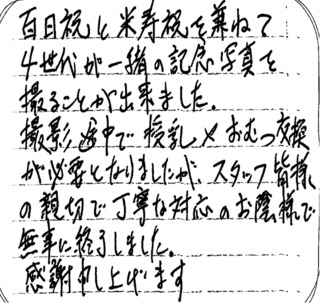 百日祝と米寿祝を兼ねて
4世代が一緒の記念写真を
撮ることが出来ました。
撮影途中で授乳やおむつ交換
が必要となりましたが、スタッフ皆様
の親切で丁寧な対応のお陰様で
無事に終了しました。
感謝申し上げます